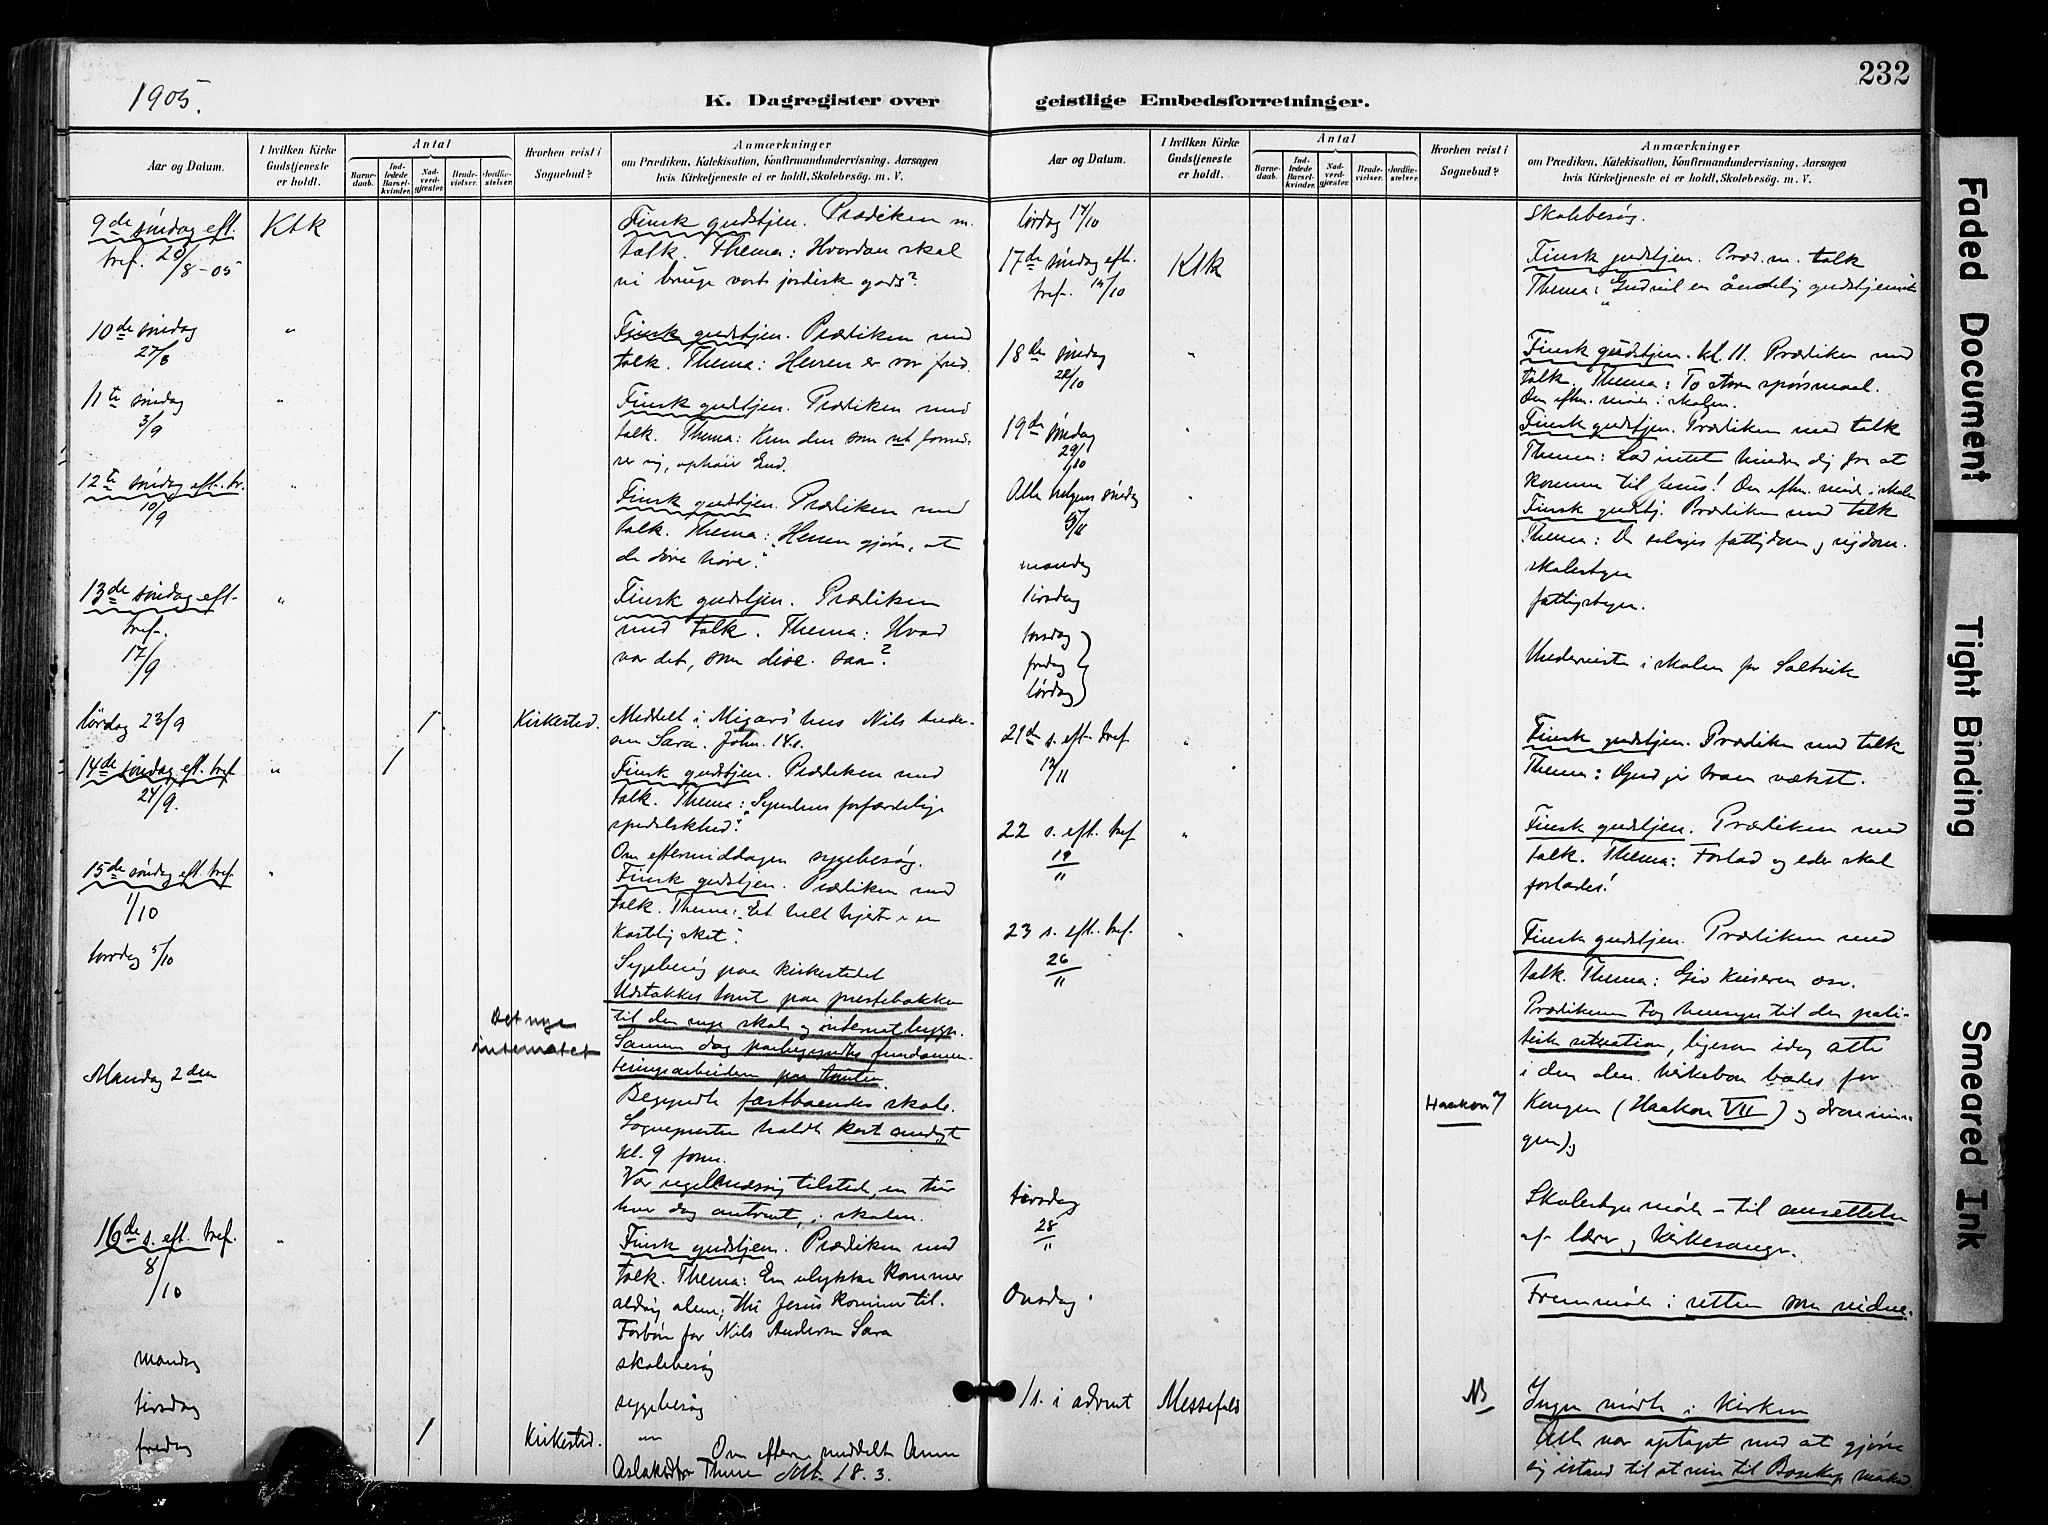 1905.
K. Dagregister over
Aar og Datum.
I hvilken Kirke Gudstjeneste er holdt.
Antal
Barnedaab.
Indledede Barselkvinder.
Nadverdgjester.
Brudevielser.
Jordfæstelser.
Hvorhen reist i Sognebud?
Anmærkninger
om Prædiken, Katekisation, Konfirmandundervisning, Aarsagen
hvis Kirketjeneste ei er holdt, Skolebesøg. m. V.
9de søndag eft. Ktk Finsk gudstjen. Prædiken m.
tref. 20/8-05 talk. Thema: Hvordan skal
vi bruge vort jordisk gods?
10de søndag " Finsk gudstjen. Prædiken med
27/8 talk. Thema: Herren er vor fred.
11te søndag " Finsk gudstjen. Prædiken med
3/9 talk. Thema: Kun den som ret
sig, ophøier Gud.
12te søndag eft. tr. " Finsk gudstjen. Prædiken med
10/9 talk. Thema: "Herren gjør, at
de døve hører."
13de søndag eft. " Finsk gudstjen. Prædiken
tref. med talk. Thema: Hvad
17/9 var det, som saa?
lørdag 23/9 1 Kirkested. Meddelt i hus Nils Ander-
sen Sara. Joh. 14.1.
14de søndag eft. tref. " 1 Finsk gudstjen. Prædiken med
24/9. talk. Thema: "Syndens forfærdelige
spedalskhed".
Om eftermiddagen sygebesøg.
15de søndag eft. tref. " Finsk gudstjen. Prædiken med
1/10 talk. Thema: Et helt hjerte er en
kostelig skat".
torsdag 5/10 Sygebesøg paa kirkestedet
Udstakkes tomt paa prestebakken
Det nye til den nye skole og internatbygn.
internatet Samme dag paabegyndtes fundamen-
teringsarbeiden paa tomten.
Mandag 2den Begyndte fastboendes skole.
Sognepresten holdt kort andagt
kl. 9 form.
Var regelmæssig tilstede, en tur
hver dag omtrent, i skolen.
16de s. eft. tref. " Finsk gudstjen. Prædiken med
8/10 talk. Thema: En ulykke kommer
aldrig alene; thi Jesus kommer til.
Forbøn for Nils Andersen Sara
mandag skolebesøg
tirsdag sygebesøg
fredag 1 Kirkested. " Om eftern. meddelt Anne
Aslaksdtr Thuri Mt. 18.3.
232
geistlige Embedsforretninger.
Aar og Datum.
I hvilken Kirke Gudstjeneste er holdt.
Antal
Barnedaab.
Indledede Barselkvinder.
Nadverdgjester.
Brudevielser.
Jordfæstelser.
Hvorhen reist i Sognebud?
Anmærkninger
om Prædiken, Katekisation, Konfirmandundervisning, Aarsagen
hvis Kirketjeneste ei er holdt, Skolebesøg. m. V.
lørdag 14/10 Skolebesøg.
17de søndag eft. Ktk Finsk gudstjen. Præd. m. talk
tref. 15/10 Thema: Gud vil en åndelig gudstjeneste
18de søndag " Finsk gudstjen. kl. 11. Prædiken med
22/10 talk. Thema: To store spørsmaal.
Om eftm. møde i skolen.
19de søndag " Finsk gudstjen. Prædiken med talk
29/10 Thema: Lad intet hindre dig fra at
komme til Jesus! Om eftm. møde i skolen
Alle helgens søndag " Finsk gudstj. Prædiken med talk
5/11 Thema: De saliges fattigdom og rigdom.
mandag skolestyre
tirsdag fattigstyre.
torsdag
fredag Underviste i skolen for Saltvik
lørdag
21de s. eft. tref " Finsk gudstjen. Prædiken med talk
12/11 Thema: Gud gir vækst.
22 s. eft. tref " Finsk gudstjen. Prædiken med
19/11 talk. Thema: Forlad og eder skal
forlades!
23 s. eft. tref. " Finsk gudstjen. Prædiken med
26/11 talk. Thema: Giv keiseren osv.
Prædikenen tog hensyn til den poli-
tiske situation, ligesom idag atter
i den kirkebøn bades for
Haakon 7 Kongen (Haakon VII) og dronnin-
gen
tirsdag Skolestyremøde – til ansettelse
28/11 af lærer og kirkesanger.
Onsdag. Fremmøde i retten som vidne.
1 s. i advent Messefald NB Ingen mødte i kirken
Alle var optaget med at gjøre
sig istand til at reise til Bosekop marked.
Faded Document
Tight Binding
Smeared Ink